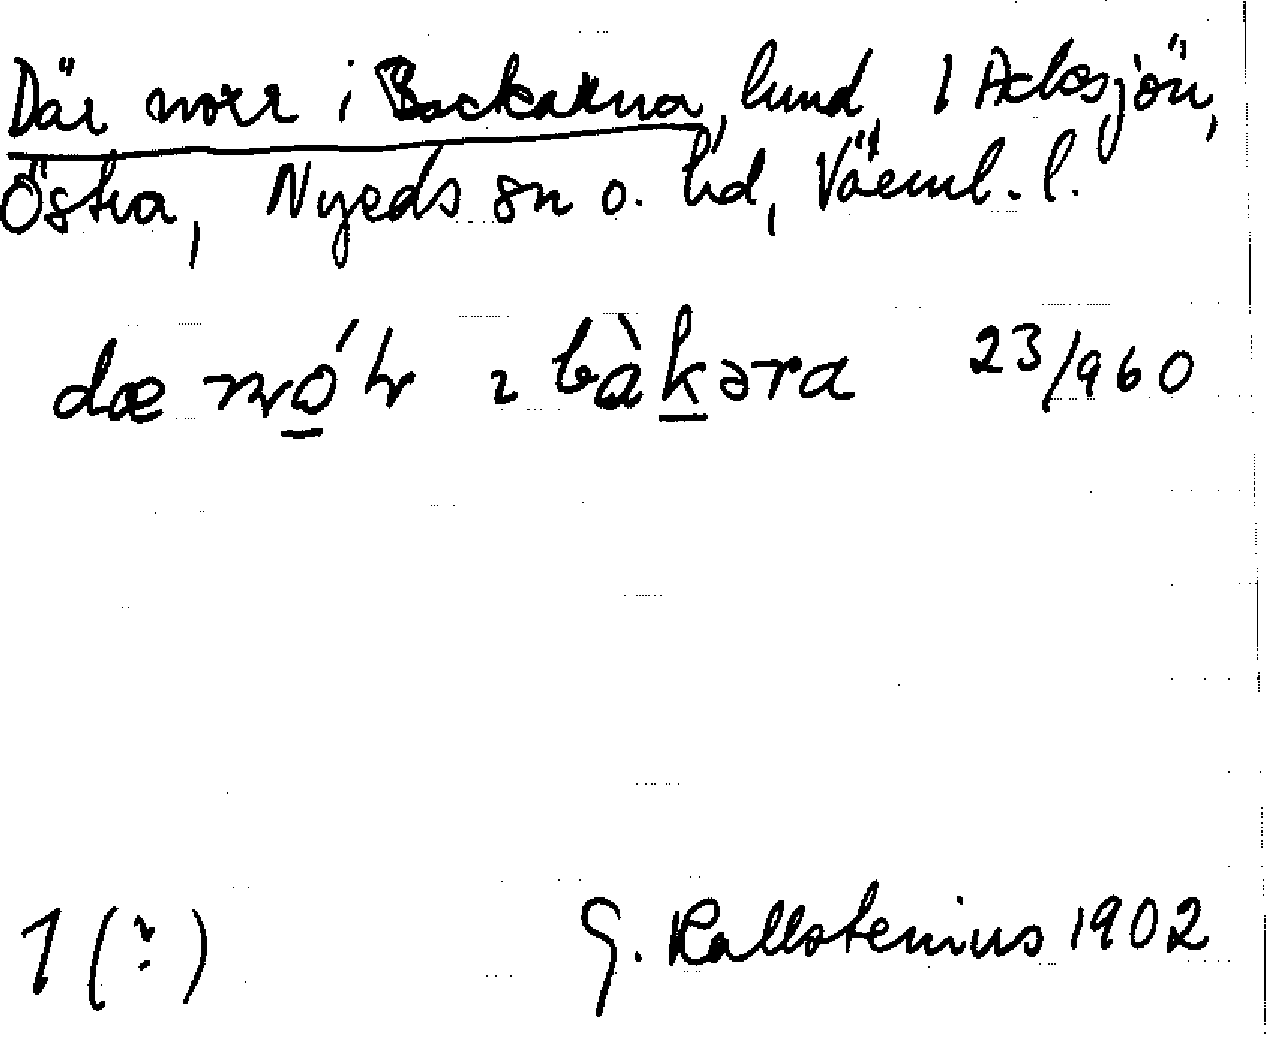 Där norr i Backarna, lund, 1 Acksjön,
Östra, Nyeds sn o. hd, Värml. l.
dæ nó̲r ı bàk̲əra 23/960
1 (?)
G. Kallstenius 1902